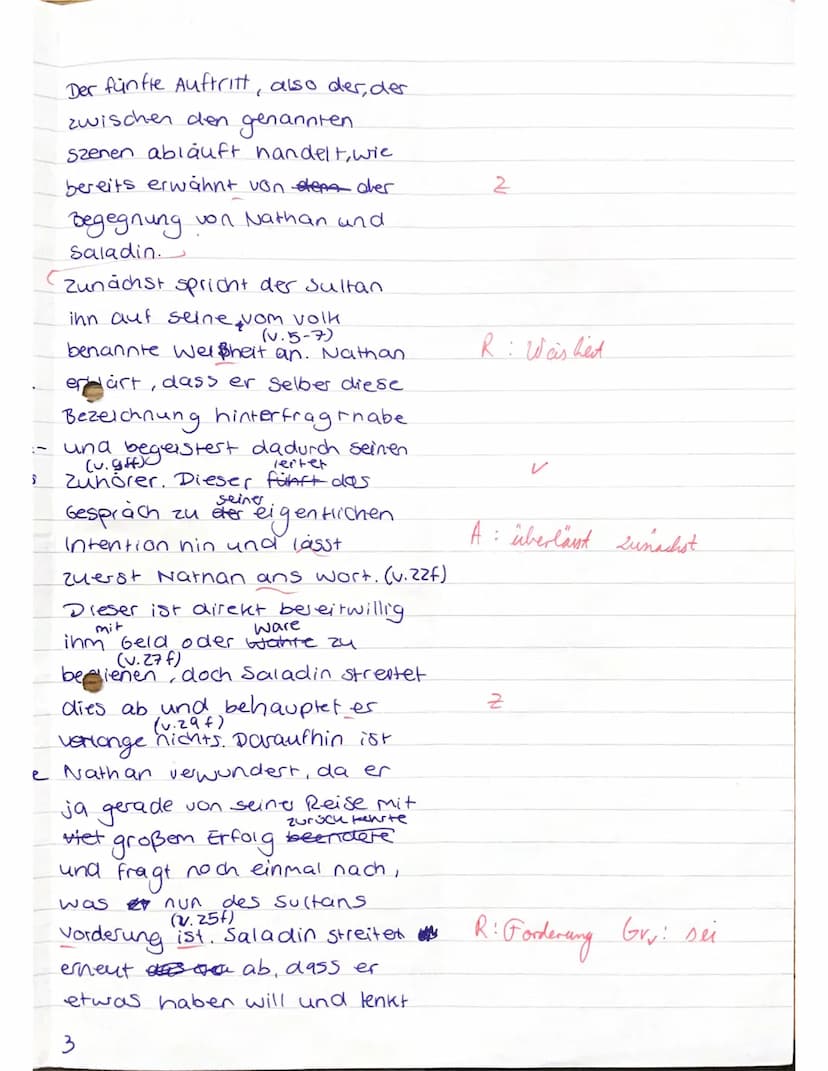 Der fünfte Auftritt, also der, der
zwischen den genannten
szenen abläuft handelt, wie
bereits erwähnt von der
Z
Begegnung von Nathan und
Saladin.
Zunächst spricht der Sultan
ihn auf seine, vom Volk
(v.5-7)
benannte Weißheit an. Nathan
R: Weisheit
erklärt, dass er selber diese
Bezeichnung hinterfragt habe
und begeistert dadurch seinen
(v.9ff) leitet
Zuhörer. Dieser führt das
✓
seiner
Gespräch zu der eigentlichen
A: überlässt zunächst
Intention hin und lässt
zuerst Nathan ans Wort. (v.22f)
Dieser ist direkt bereitwillig
mit Ware
ihm Geld oder Wahre zu
(v.27f)
bedienen, doch Saladin streitet
dies ab und behauptet er
Z
(v.29f)
verlange nichts. Daraufhin ist
e Nathan verwundert, da er
ja gerade von seiner Reise mit
zurück kehrte
viel großem Erfolg beendete
und fragt noch einmal nach,
was er nun des Sultans
(v.25f)
Vorderung ist. Saladin streitet
R: Forderung Gr.: sei
erneut ab, dass er
etwas haben will und lenkt
3